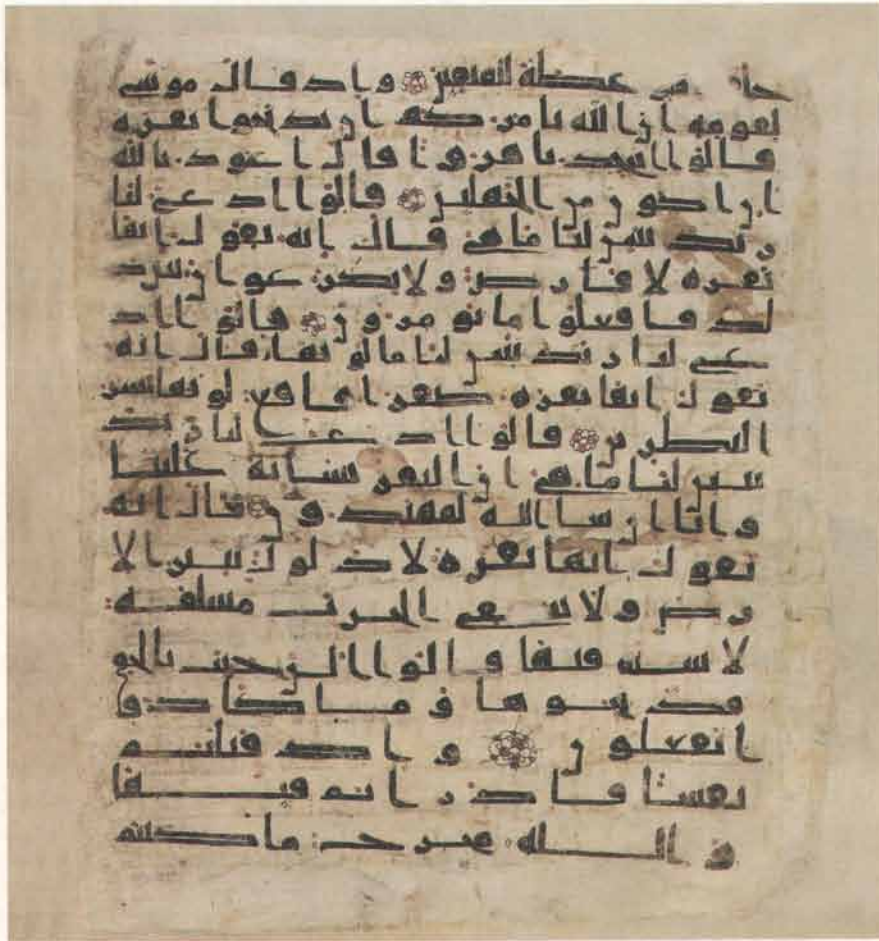 عظة للمتقين واذ قال موسى
لقومه ان الله يامركم ان تذبحوا بقرة
قالوا اتتخذنا هزوا قال اعوذ بالله
ان اكون من الجهلين قالوا ادع لنا
ربك يبين لنا ما هي قال انه يقول انها
بقرة لا فارض ولا بكر عوان بين
ذلك فافعلوا ما تومرون قالوا اد
ع لنا ربك يبين لنا ما لونها قال انه
يقول انها بقرة صفرا فاقع لونها تسر
النظرين قالوا ادع لنا ربك
يبين لنا ما هي ان البقر تشبه علينا
وانا ان شا الله لمهتدون قال انه
يقول انها بقرة لا ذلول تثير الا
رض ولا تسقي الحرث مسلمة
لا شية فيها قالوا الن جيت بالحق
فذبحوها وما كادوا
يفعلون واذ قتلتم
نفسا فادرتم فيها
والله مخرج ما كنتم